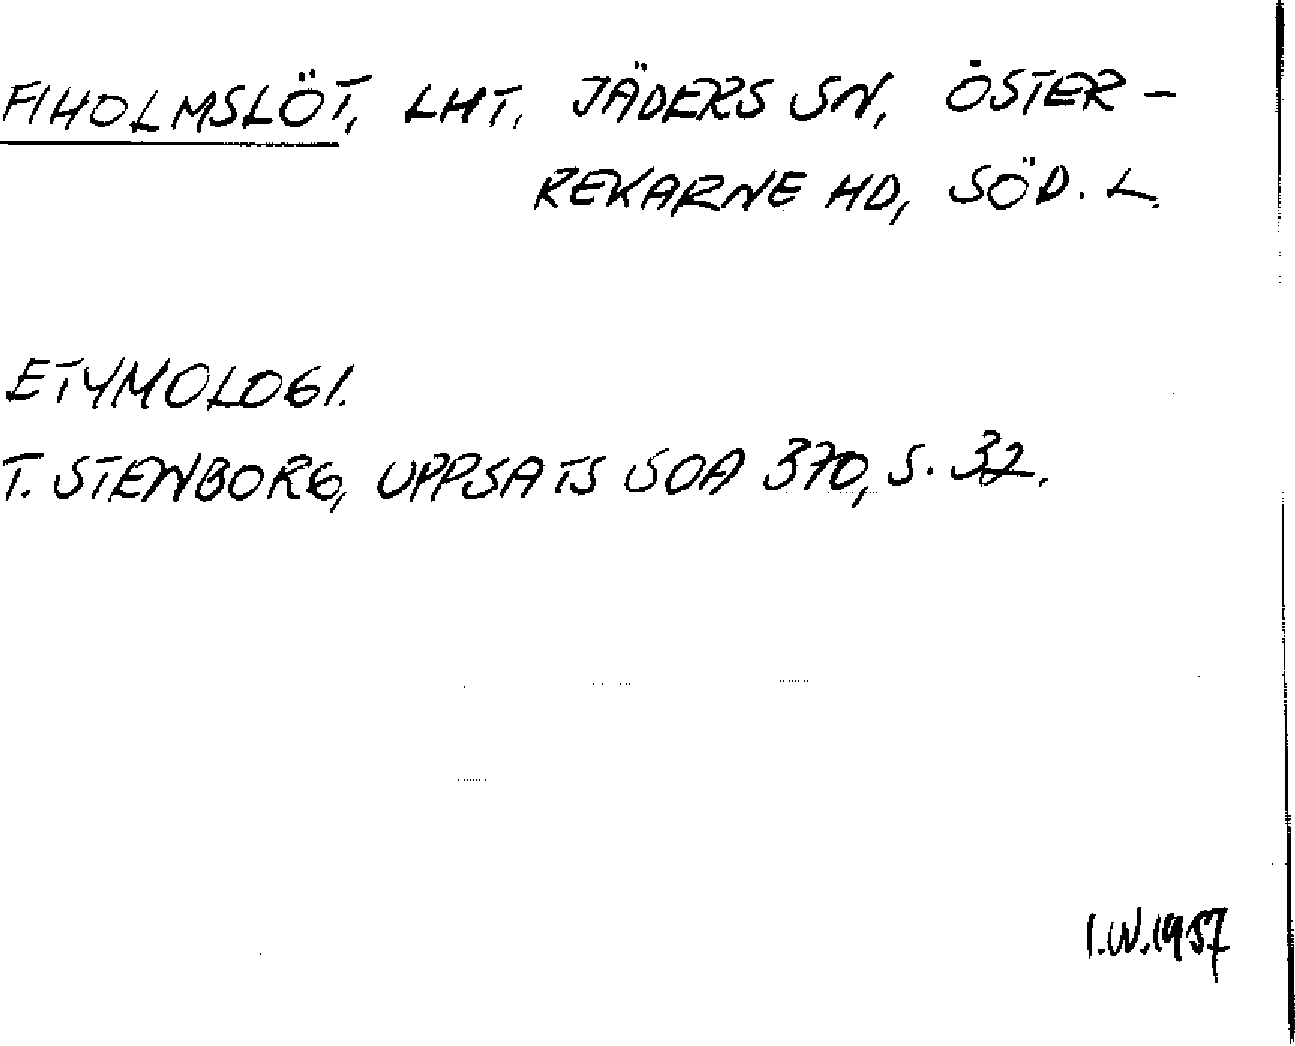 FIHOLMSLÖT, LHT, JÄDERS SN, ÖSTER-
REKARNE HD, SÖD. L.
ETYMOLOGI.
T. STENBORG, UPPSATS SOA 370, S. 32.
I.W.1957